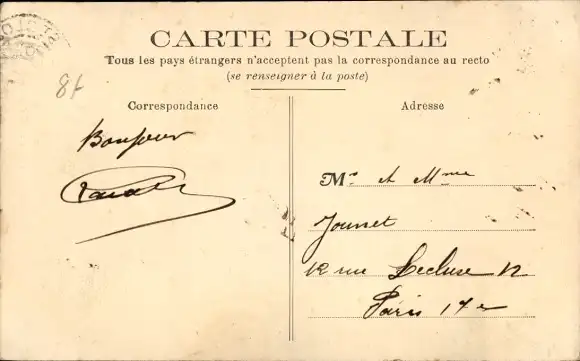 CARTE POSTALE
Tous les pays étrangers n'acceptent pas la correspondance au recto
(se renseigner à la poste)
Correspondance
Adresse
8f
Bonjour
Mr. et Mme
Jounet
12 rue Lecluse 12
Paris 17e